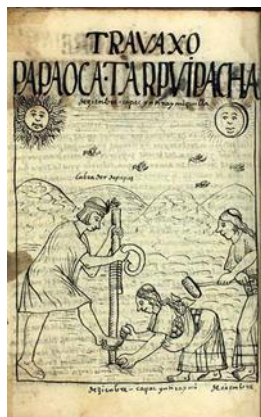 TRAVAXO
PAPAOCA·TARPVIPACHA
dezienbre - capac ynti raymi quilla
dezienbre - capac ynti raymi